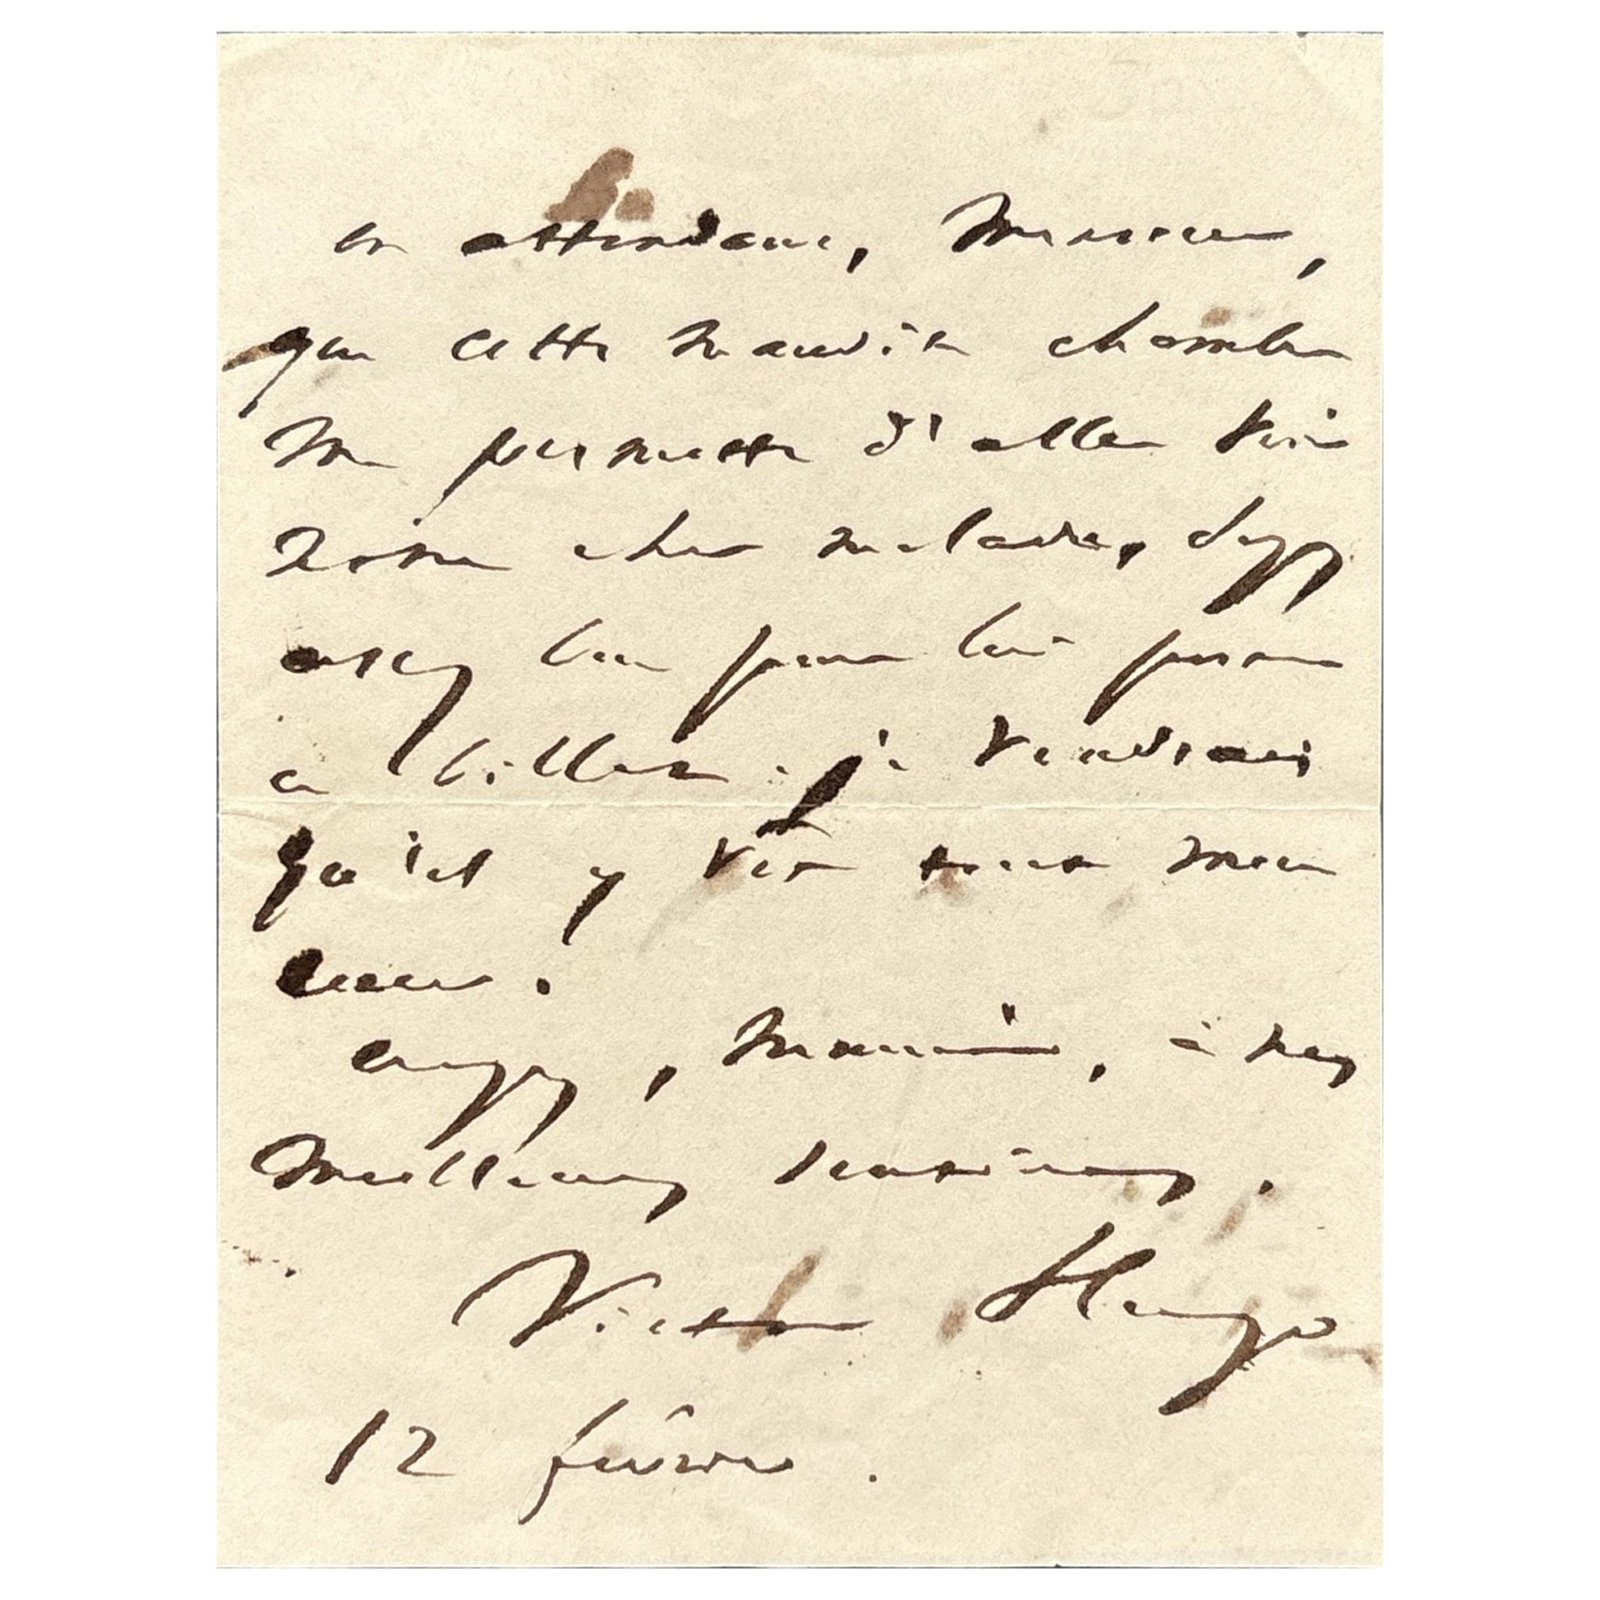 en attendant, Monsieur,
que cette maudite chambre
me permette d'aller voir
notre cher malade, soyez
assez bon pour lui porter
ce billet. je voudrais
qu'il y vît tout mon
cœur.
croyez, Monsieur, à mes
meilleurs sentiments.
Victor Hugo
12 février.